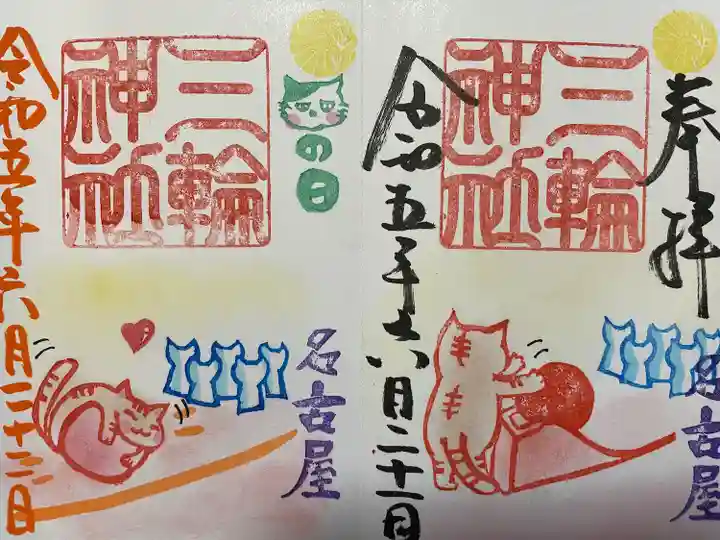 奉拝
三輪
神社
名古屋
令和五年六月二十一日
の日
三輪
神社
名古屋
令和五年六月二十二日